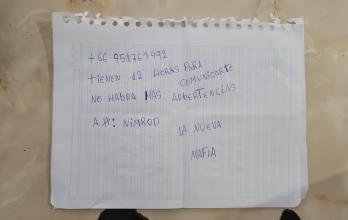 +66 951769992
TIENEN 12 HORAS PARA
COMUNICARTE
NO HABRA MAS ADBERTENCIAS
A #: NIMROD
LA NUEVA
MAFIA